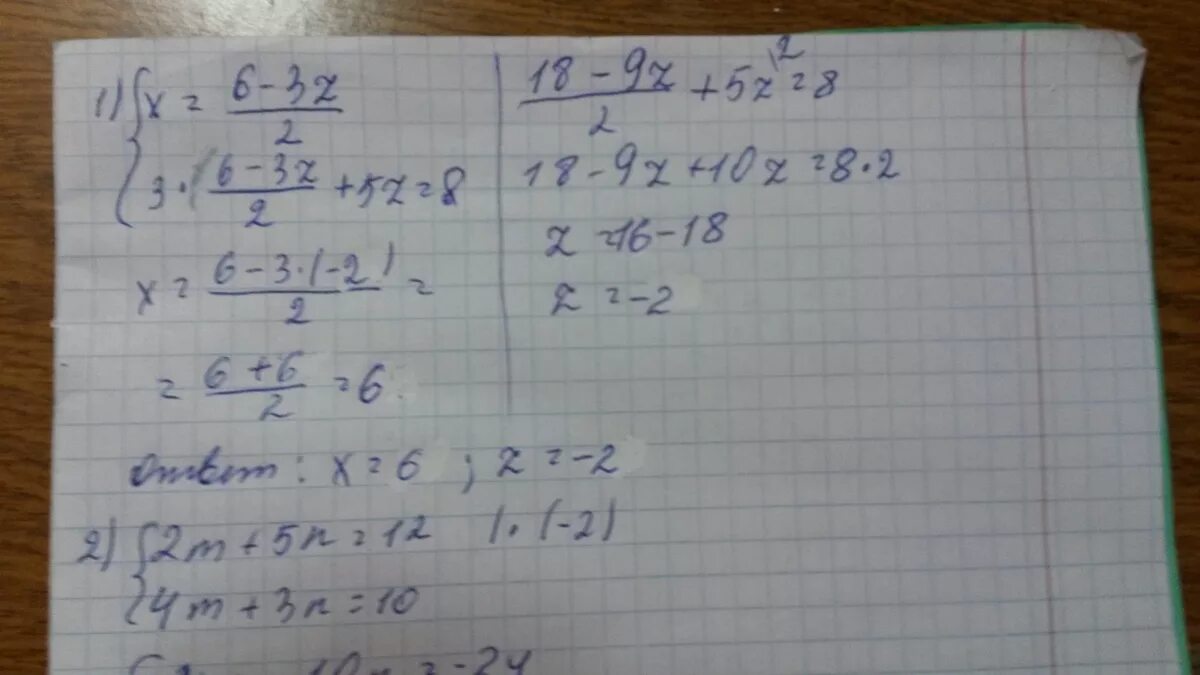 1) { x = (6 - 3z)/2
3 · (6 - 3z)/2 + 5z = 8
x = (6 - 3 · (-2))/2 =
= (6 + 6)/2 = 6
(18 - 9z)/2 + 5z \2 = 8
18 - 9z + 10z = 8 · 2
z = 16 - 18
z = -2
Ответ: x = 6 ; z = -2
2) { 2m + 5n = 12 | · (-2)
4m + 3n = 10
10n = -24